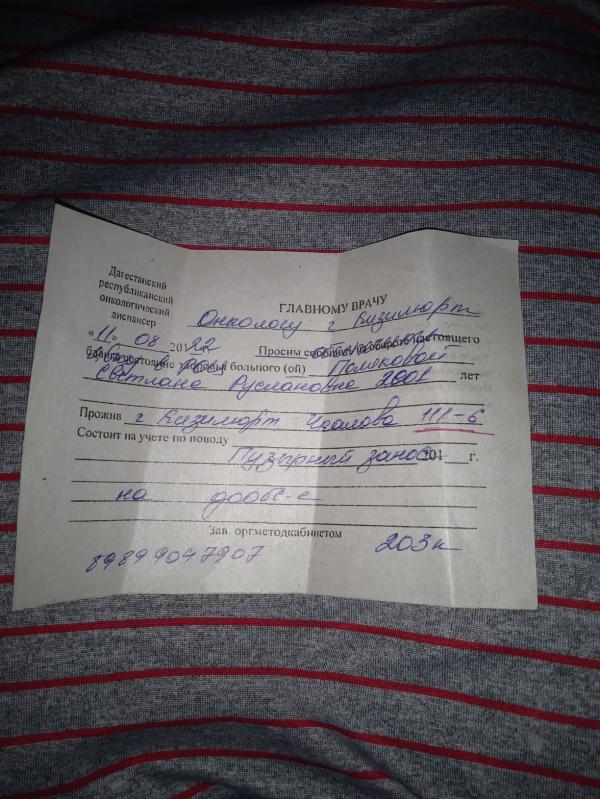 Дагестанский
республиканский
онкологический
диспансер
ГЛАВНОМУ ВРАЧУ
Онкологу г Кизилюрт
«11» 08 2022 Просим сообщить на обороте настоящего
бланка состояние здоровья больного (ой)
Светлана Руслановна 2001 лет
Прожив г Кизилюрт Чкалова 111-6
Состоит на учете по поводу
Пузырный занос 201 г.
на дообс-е
Зав. оргметодкабинетом
89899047907 203к